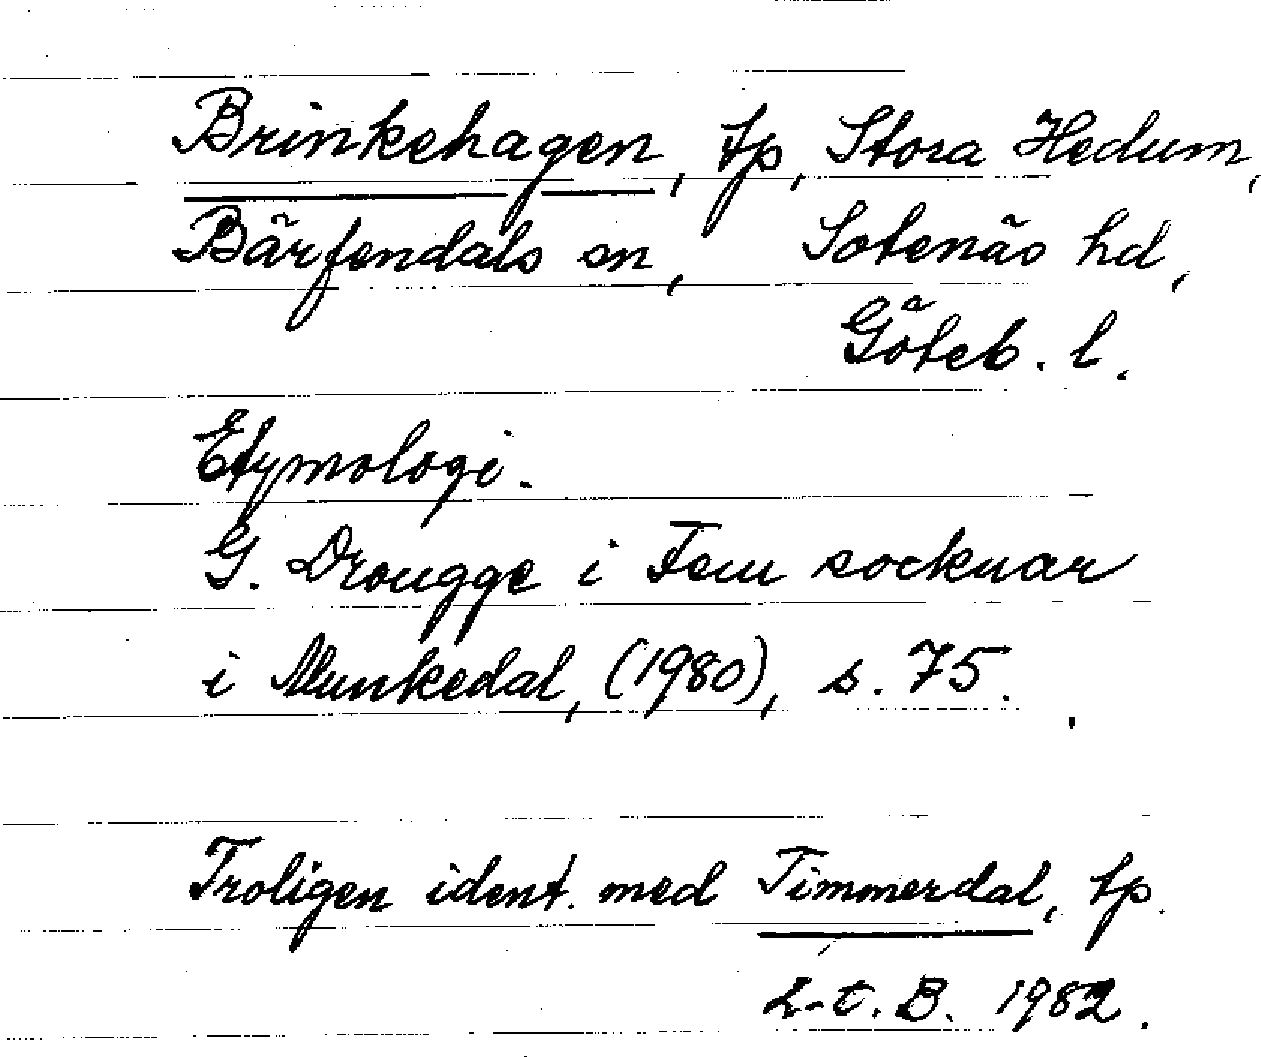 Brinkehagen, tp, Stora Hedum,
Bärfendals sn, Sotenäs hd,
Göteb. l.
Etymologi.
G. Drougge i Fem socknar
i Munkedal, (1980), s. 75.
Troligen ident. med Timmerdal, tp.
L-E. B. 1982.